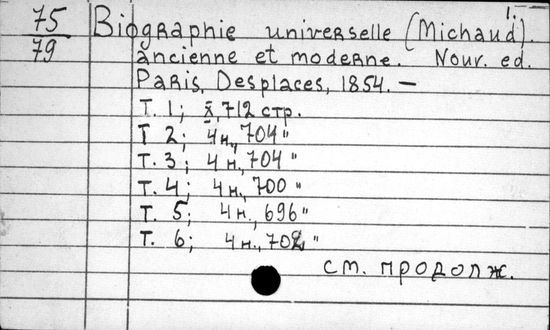 75
79
Biographie universelle (Michaud).
1.
ancienne et moderne. Nouv. ed.
Paris, Desplaces, 1854. —
Т. 1; X, 712 стр.
Т 2; 4 н., 704 "
Т. 3; 4 н., 704 "
Т. 4; 4 н., 700 "
Т. 5; 4 н., 696 "
Т. 6; 4 н., 702 "
см. продолж.